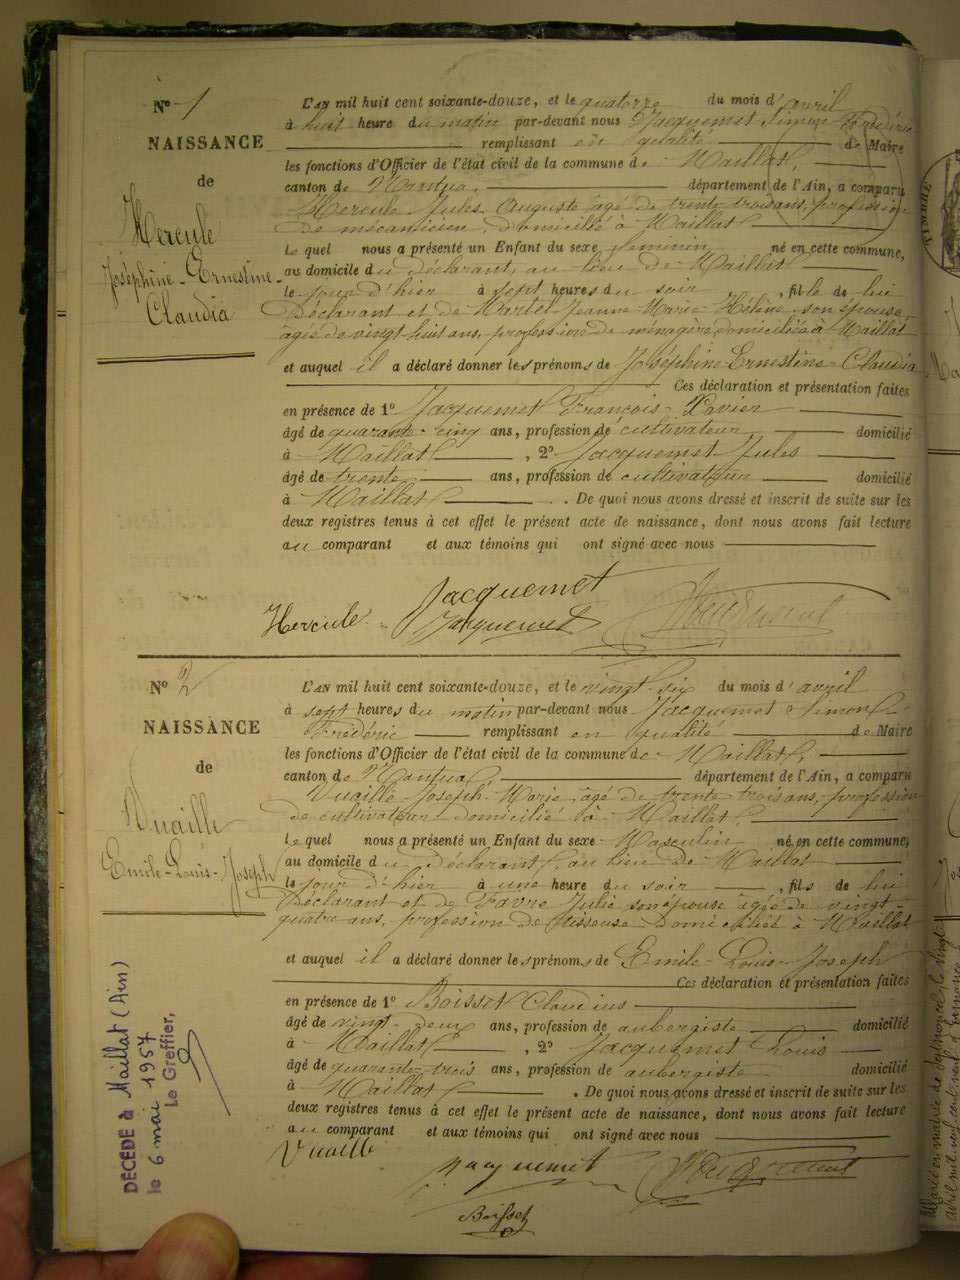 N° 1
NAISSANCE
de
Hercule
Joséphine-Ernestine-
Claudia
L'AN mil huit cent soixante-douze, et le quatorze du mois d'avril
à huit heure du matin par-devant nous Jacquemet Simon Frédéric
remplissant en qualité de Maire
les fonctions d'Officier de l'état civil de la commune de Maillat,
canton de Nantua, département de l'Ain, a comparu
Hercule Jules Auguste âgé de trente trois ans, profession
de mécanicien, domicilié à Maillat
Le quel nous a présenté un Enfant du sexe féminin né en cette commune,
au domicile du déclarant, au lieu de Maillat
le jour d'hier à sept heures du soir, fille de lui
Déclarant et de Martel Jeanne-Marie-Hélène son épouse,
âgée de vingt huit ans, profession de ménagère domiciliée à Maillat
et auquel il a déclaré donner les prénoms de Joséphine-Ernestine-Claudia
Ces déclaration et présentation faites
en présence de 1° Jacquemet François-Xavier
âgé de quarante-cinq ans, profession de cultivateur domicilié
à Maillat, 2° Jacquemet Jules
âgé de trente ans, profession de cultivateur domicilié
à Maillat. De quoi nous avons dressé et inscrit de suite sur les
deux registres tenus à cet effet le présent acte de naissance, dont nous avons fait lecture
au comparant et aux témoins qui ont signé avec nous
Jacquemet
Hercule Jacquemet
N° 2
NAISSANCE
de
Vuaille
Emile-Louis-Joseph
L'AN mil huit cent soixante-douze, et le vingt-six du mois d'avril
à sept heures du matin par-devant nous Jacquemet Simon
Frédéric remplissant en qualité de Maire
les fonctions d'Officier de l'état civil de la commune de Maillat,
canton de Nantua, département de l'Ain, a comparu
Vuaille Joseph-Marie, âgé de trente trois ans, profession
de cultivateur domicilié à Maillat,
Le quel nous a présenté un Enfant du sexe Masculin né en cette commune,
au domicile du Déclarant, au lieu de Maillat
le jour d'hier à une heure du soir, fils de lui
Déclarant et de Favre Julie son épouse âgée de vingt-
quatre ans, profession de Tisseuse domiciliée à Maillat
et auquel il a déclaré donner les prénoms de Emile-Louis-Joseph
Ces déclaration et présentation faites
en présence de 1° Boisset Claudius
âgé de vingt-deux ans, profession de aubergiste domicilié
à Maillat, 2° Jacquemet Louis
âgé de quarante-trois ans, profession de aubergiste domicilié
à Maillat. De quoi nous avons dressé et inscrit de suite sur les
deux registres tenus à cet effet le présent acte de naissance, dont nous avons fait lecture
au comparant et aux témoins qui ont signé avec nous
Vuaille
Jacquemet
Boisset
DECEDE à Maillat (Ain)
le 6 mai 1957
Le Greffier,